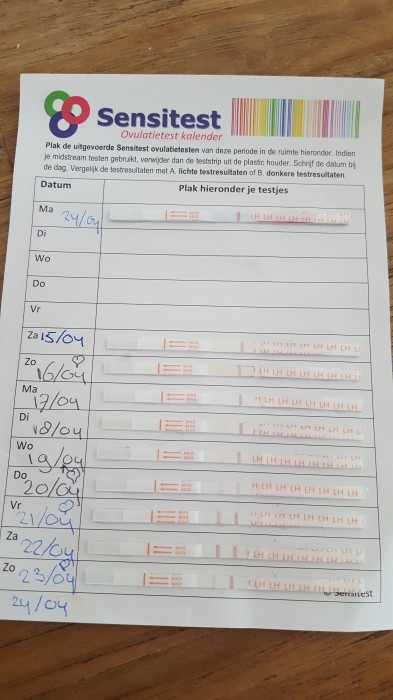 Sensitest
Ovulatietest kalender
Plak de uitgevoerde Sensitest ovulatietesten van deze periode in de ruimte hieronder. Indien
je midstream testen gebruikt, verwijder dan de teststrip uit de plastic houder. Schrijf de datum bij
de dag. Vergelijk de testresultaten met A. lichte testresultaten of B. donkere testresultaten.
Datum Plak hieronder je testjes
Ma 24/04 MAX MAX LH LH LH LH LH LH LH
Di
Wo
Do
Vr
Za 15/04 MAX MAX LH LH LH LH LH LH
Zo 16/04 MAX MAX LH LH LH LH LH LH
Ma 17/04 MAX MAX LH LH LH LH LH LH
Di 18/04 MAX MAX LH LH LH LH LH LH
Wo 19/04 MAX MAX LH LH LH LH LH LH
Do 20/04 MAX MAX LH LH LH LH LH LH
Vr 21/04 MAX MAX LH LH LH LH LH LH
Za 22/04 MAX MAX LH LH LH LH LH LH
Zo 23/04 MAX MAX LH LH LH LH LH LH
© Sensitest
24/04